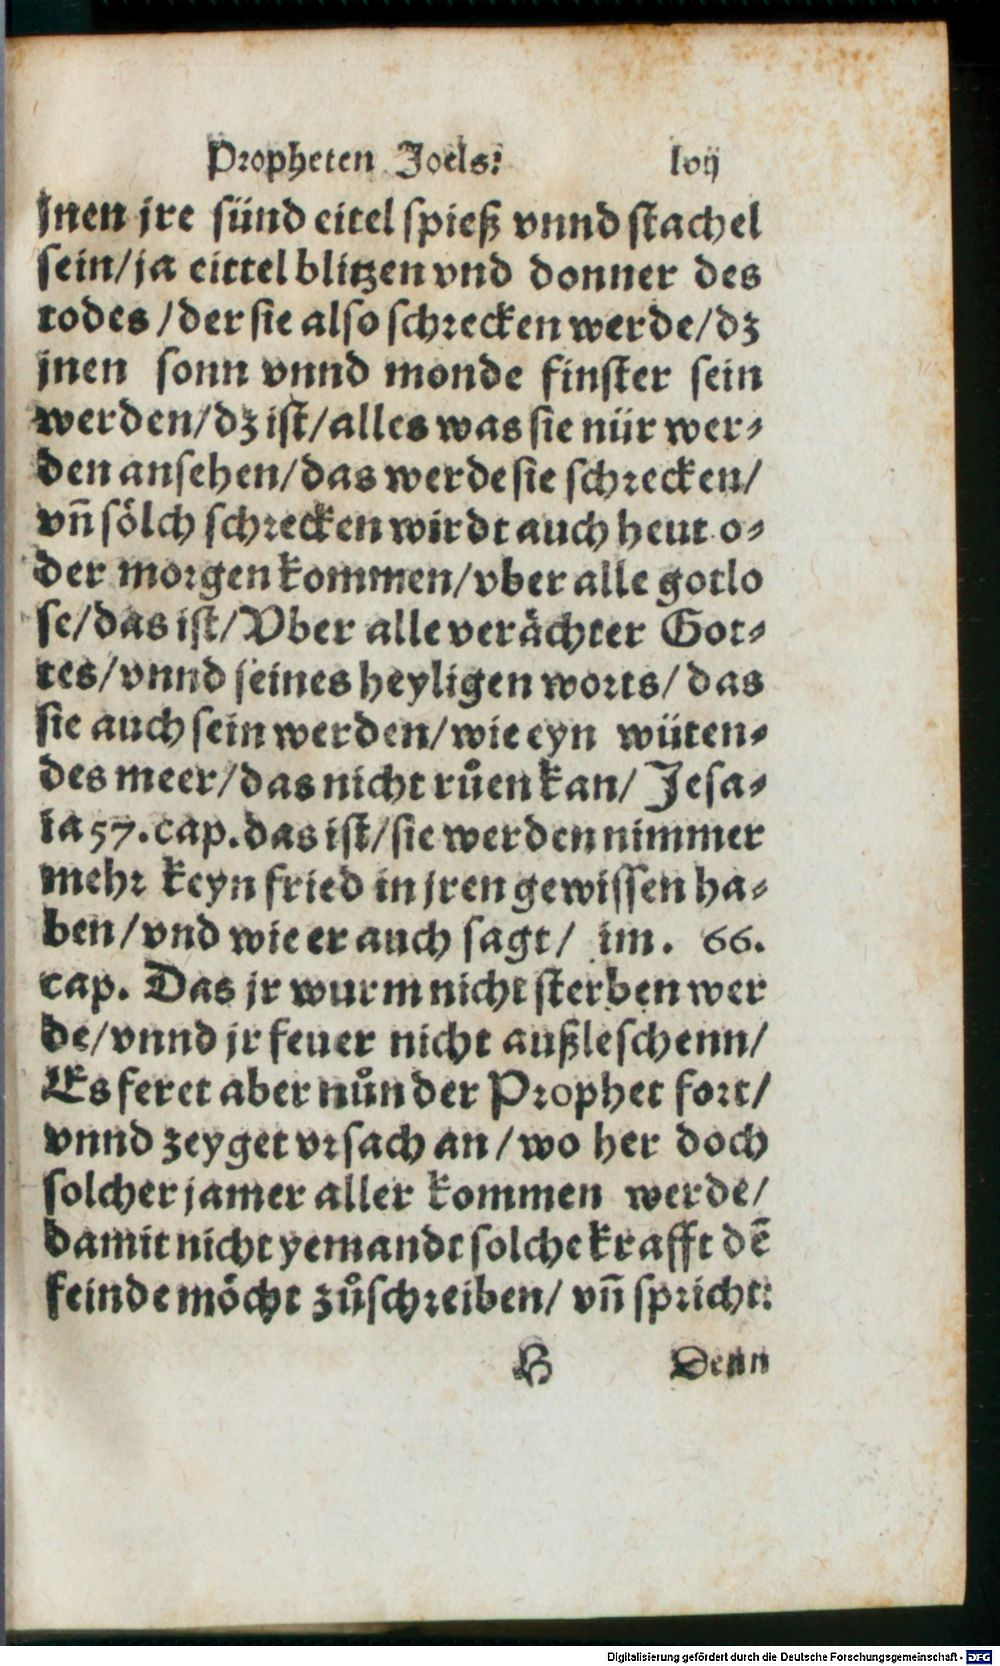 Propheten Joels: lvij
jnen jre sünd eitel spieß vnnd stachel
sein/ja eittel blitzen vnd donner des
todes/der sie also schrecken werde/dz
jnen sonn vnnd monde finster sein
werden/dz ist/alles was sie nür wer-
den ansehen/das werde sie schrecken/
vñ sölch schrecken wirdt auch heut o-
der morgen kommen/vber alle gotlo
se/das ist/Vber alle verächter Got-
tes/vnnd seines heyligen worts/das
sie auch sein werden/wie eyn wüten-
des meer/das nicht růen kan/ Jesa-
ia 57. cap. das ist/sie werden nimmer
mehr keyn fried in jren gewissen ha-
ben/vnd wie er auch sagt/ im. 66.
cap. Das jr wurm nicht sterben wer
de/vnnd jr feuer nicht außleschenn/
Es feret aber nůn der Prophet fort/
vnnd zeyget vrsach an/wo her doch
solcher jamer aller kommen werde/
damit nicht yemandt solche krafft dē
feinde möcht zůschreiben/ vñ spricht:
H Denn
Digitalisierung gefördert durch die Deutsche Forschungsgemeinschaft - DFG